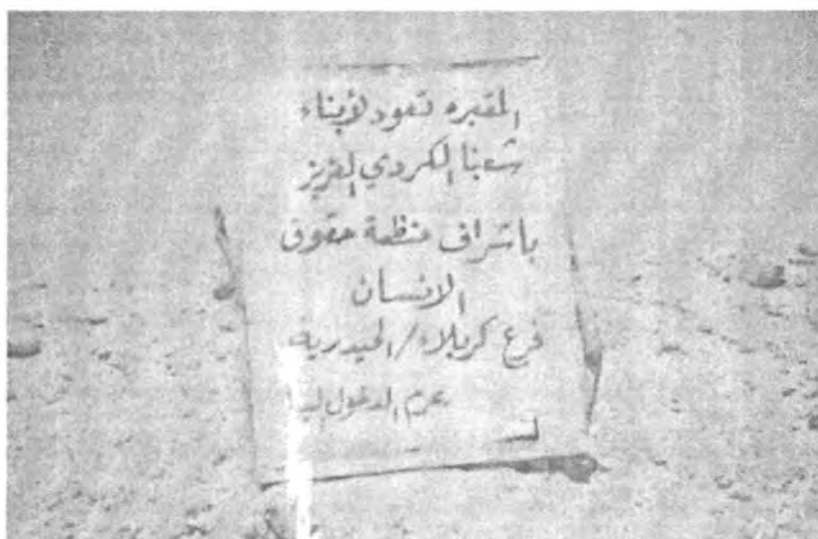 المقبره تعود لأبناء
شعبنا الكردي العزيز
باشراف منظمة حقوق
الانسان
فرع كربلاء/الحيدرية
يحرم الدخول اليها